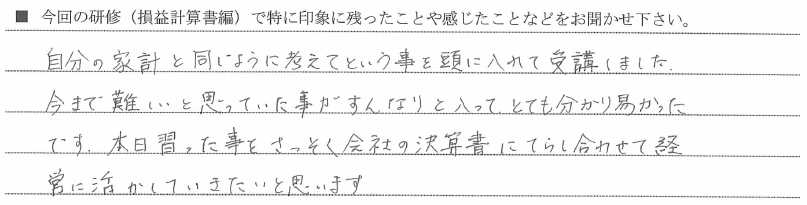 ■ 今回の研修（損益計算書編）で特に印象に残ったことや感じたことなどをお聞かせ下さい。
自分の家計と同じように考えてという事を頭に入れて受講しました.
今まで難しいと思っていた事がすんなりと入って、とても分かり易かった
です. 本日習った事をさっそく会社の決算書にてらし合わせて経
営に活かしていきたいと思います